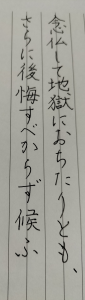 念仏して地獄におちたりとも、
さらに後悔すべからず候ふ